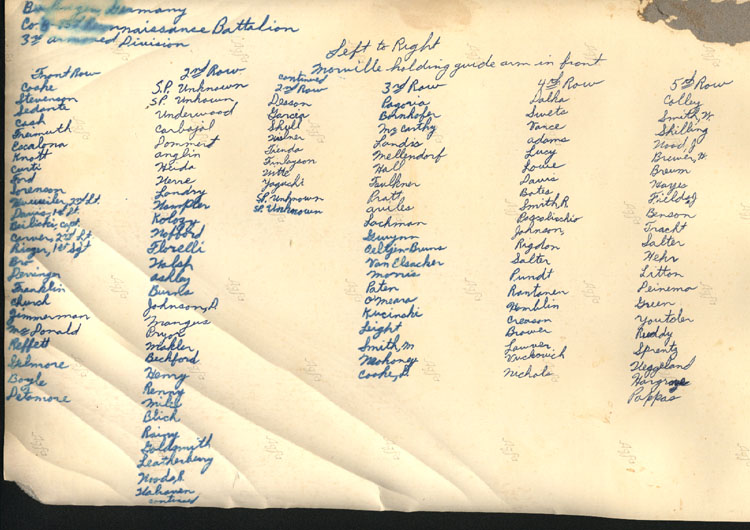 Germany
Reconnaissance Battalion
3rd armored Division
Left to Right
Morville holding guide arm in front
Front Row
Cooke
Stevenson
Sedante
Cash
Escalona
Knott
Curti
Ford
Sorenson
2nd Lt.
Davis, 1st Lt.
Capt
Carver, 2nd Lt
1st Sgt
Bro
Devinger
Franklin
Church
Zimmerman
McDonald
Reffett
Gilmore
Boyle
Detamore
2nd Row
S.P. Unknown
S.P. Unknown
Underwood
Carbajal
Pommert
anglin
Weida
Herre
Landry
Hampler
Kology
Hofford
Florelli
Walsh
ashley
Burns
Johnson, D
Mangus
Bryon
Mahler
Beckford
Henry
Renny
Mile
Blich
Rainy
Goldsmith
Leatherberry
Woods,
continued
continued
2nd Row
Desson
Garcia
Shyll
Tienda
Finlayson
Witte
Yoguchi
S.P. Unknown
S.P. Unknown
3rd Row
Pagoria
Barnhofer
McCarthy
Landis
Mellendorf
Hall
Faulkner
Pratt
Lachman
Gwynn
Oeltjen-Bruns
Morris
Paten
O'Meara
Kucinski
Light
Smith, M
Mahoney
Cooke, D.
4th Row
Salka
Swets
Vance
adams
Lucy
Louie
Davis
Bates
Smith, R
Johnson,
Rigdon
Salter
Pundt
Rantanen
Hamblin
Creason
Brower
Lawver
Vuckovich
Nichols
5th Row
Colley
Smith, W
Skilling
Wood, J
Brewer, W
Breum
Hayes
Fields, J
Benson
Tracht
Salter
Wehr
Litton
Peinema
Green
Youtcler
Ruddy
Sprentz
Heggeland
Hargrove
Pappas